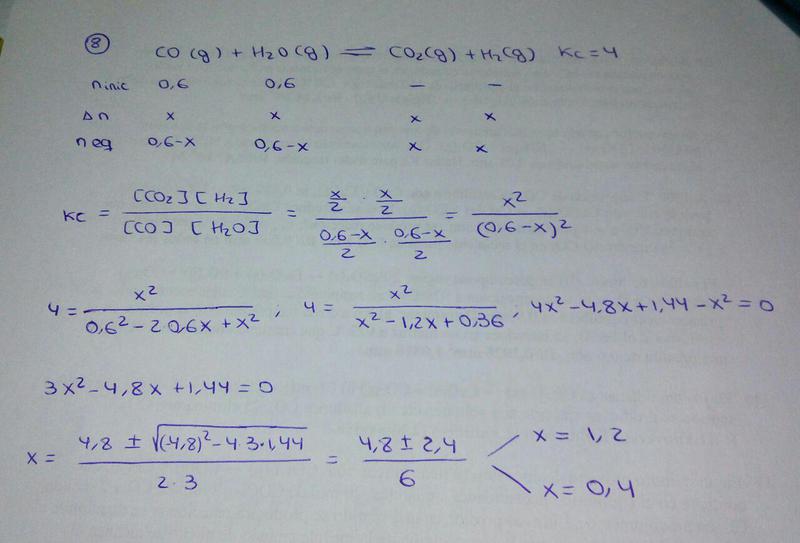 ⑧ CO (g) + H₂O (g) ⇌ CO₂(g) + H₂(g) Kc = 4
n inic 0,6 0,6 — —
Δn x x x x
n eq 0,6-x 0,6-x x x
Kc = [CO₂][H₂] / [CO] [H₂O] = (x/2 · x/2) / ((0,6-x)/2 · (0,6-x)/2) = x² / (0,6-x)²
4 = x² / (0,6² - 2 0,6x + x²) ; 4 = x² / (x² - 1,2x + 0,36) ; 4x² - 4,8x + 1,44 - x² = 0
3x² - 4,8x + 1,44 = 0
x = (4,8 ± √((4,8)² - 4·3·1,44)) / (2·3) = (4,8 ± 2,4) / 6 x = 1,2
x = 0,4